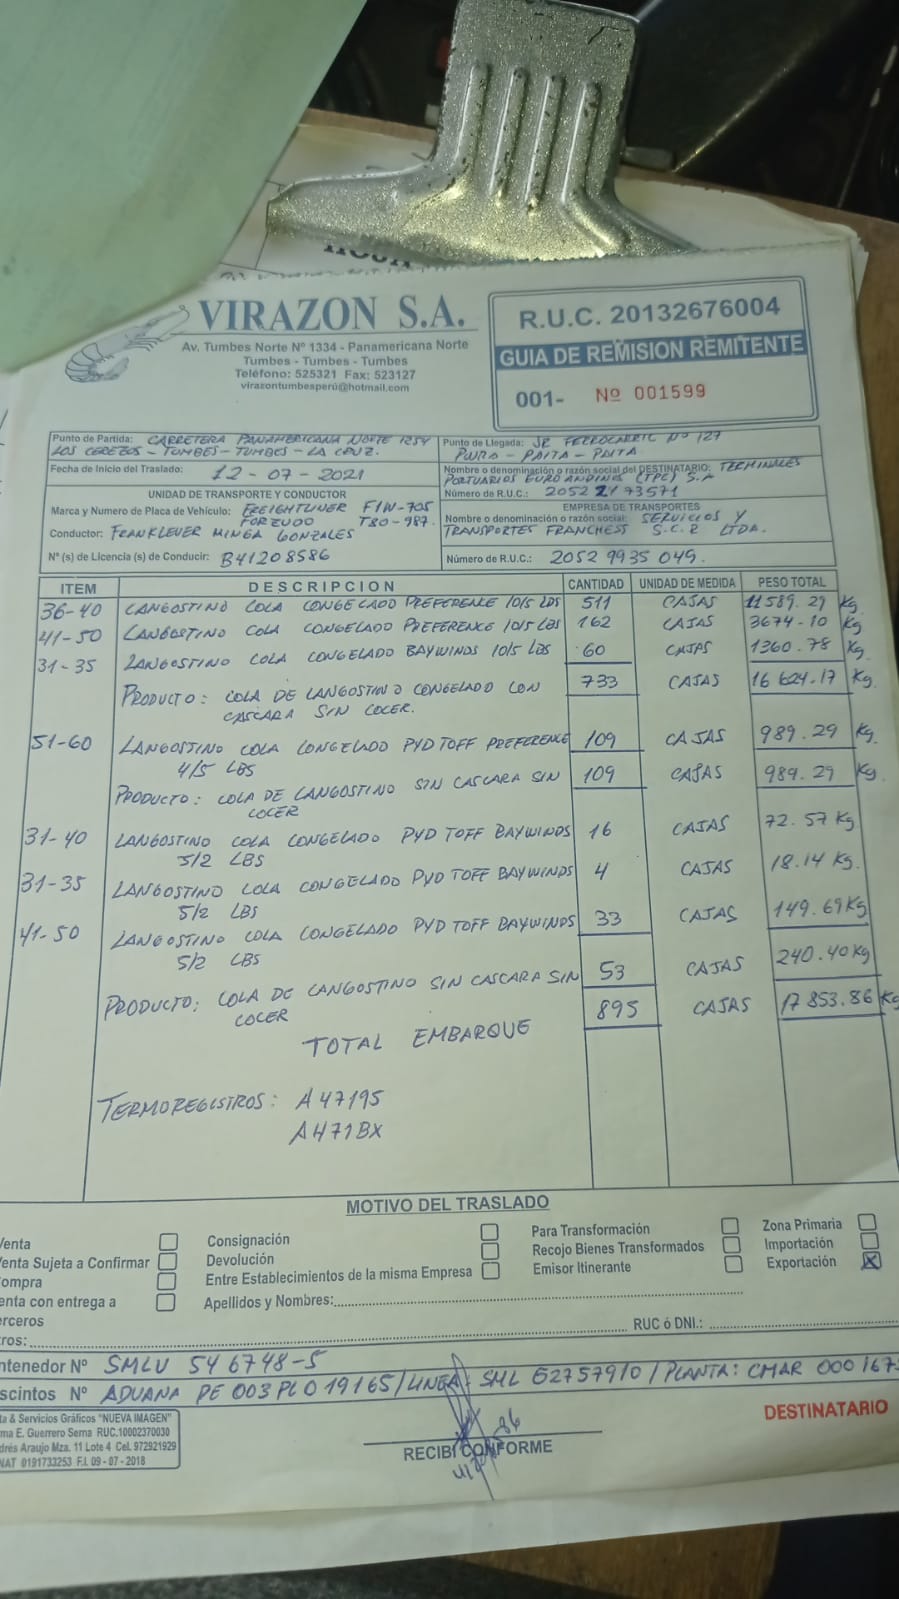 VIRAZON S.A.
Av. Tumbes Norte Nº 1334 - Panamericana Norte
Tumbes - Tumbes - Tumbes
Teléfono: 525321 Fax: 523127
virazontumbesperú@hotmail.com
R.U.C. 20132676004
GUIA DE REMISION REMITENTE
001- Nº 001599
Punto de Partida: CARRETERA PANAMERICANA NORTE 1254
LOS CEREZOS - TUMBES - TUMBES - LA CRUZ.
Punto de Llegada: JR FERROCARRIL Nº 127
PIURA - PAITA - PAITA
Fecha de Inicio del Traslado: 12 - 07 - 2021
Nombre o denominación o razón social del DESTINATARIO: TERMINALES
PORTUARIOS EUROANDINOS (TPE) S.A
Número de R.U.C.:
UNIDAD DE TRANSPORTE Y CONDUCTOR
Marca y Numero de Placa de Vehículo: FREIGHTLINER F1W-705
FORZUDO T80-987.
Conductor: FRANKLEVER MINGA GONZALES
Nº (s) de Licencia (s) de Conducir: B41208586
EMPRESA DE TRANSPORTES
Nombre o denominación o razón social: SERVICIOS Y
TRANSPORTES FRANCHESS S.C.R LTDA.
Número de R.U.C.: 2052 9935 049.
ITEM DESCRIPCION CANTIDAD UNIDAD DE MEDIDA PESO TOTAL
36-40 LANGOSTINO COLA CONGELADO PREFERENCE 10/5 LBS 511 CAJAS 11589.29 Kg.
41-50 LANGOSTINO COLA CONGELADO PREFERENCE 10/5 LBS 162 CAJAS 3674.10 Kg
31-35 LANGOSTINO COLA CONGELADO BAYWINDS 10/5 LBS 60 CAJAS 1360.78 Kg.
PRODUCTO: COLA DE LANGOSTINO CONGELADO CON 733 CAJAS 16 624.17 Kg.
CASCARA SIN COCER.
51-60 LANGOSTINO COLA CONGELADO PYD TOFF PREFERENCE 109 CAJAS 989.29 Kg.
4/5 LBS
PRODUCTO: COLA DE LANGOSTINO SIN CASCARA SIN 109 CAJAS 989.29 Kg.
COCER
31-40 LANGOSTINO COLA CONGELADO PYD TOFF BAYWINDS 16 CAJAS 72.57 Kg
5/2 LBS
31-35 LANGOSTINO COLA CONGELADO PYD TOFF BAYWINDS 4 CAJAS 18.14 Kg.
5/2 LBS
41-50 LANGOSTINO COLA CONGELADO PYD TOFF BAYWINDS 33 CAJAS 149.69 Kg
5/2 LBS
PRODUCTO: COLA DE LANGOSTINO SIN CASCARA SIN 53 CAJAS 240.40 Kg
COCER
TOTAL EMBARQUE 895 CAJAS 17 853.86 Kg
TERMOREGISTROS: A47195
A471BX
MOTIVO DEL TRASLADO
enta Consignación Para Transformación Zona Primaria
enta Sujeta a Confirmar Devolución Recojo Bienes Transformados Importación
ompra Entre Establecimientos de la misma Empresa Emisor Itinerante Exportación X
enta con entrega a Apellidos y Nombres:
erceros RUC ó DNI.:
ros:
ntenedor Nº SMLU 546748-5
scintos Nº ADUANA PE 003 PLO 19165 / LINEA: SML 6275791/0 / PLANTA: CMAR 000 167
ta & Servicios Gráficos "NUEVA IMAGEN"
ma E. Guerrero Serna RUC.10002370030
drés Araujo Mza. 11 Lote 4 Cel. 972921929
NAT 0191733253 F.I. 09 - 07 - 2018
RECIBI CONFORME
DESTINATARIO